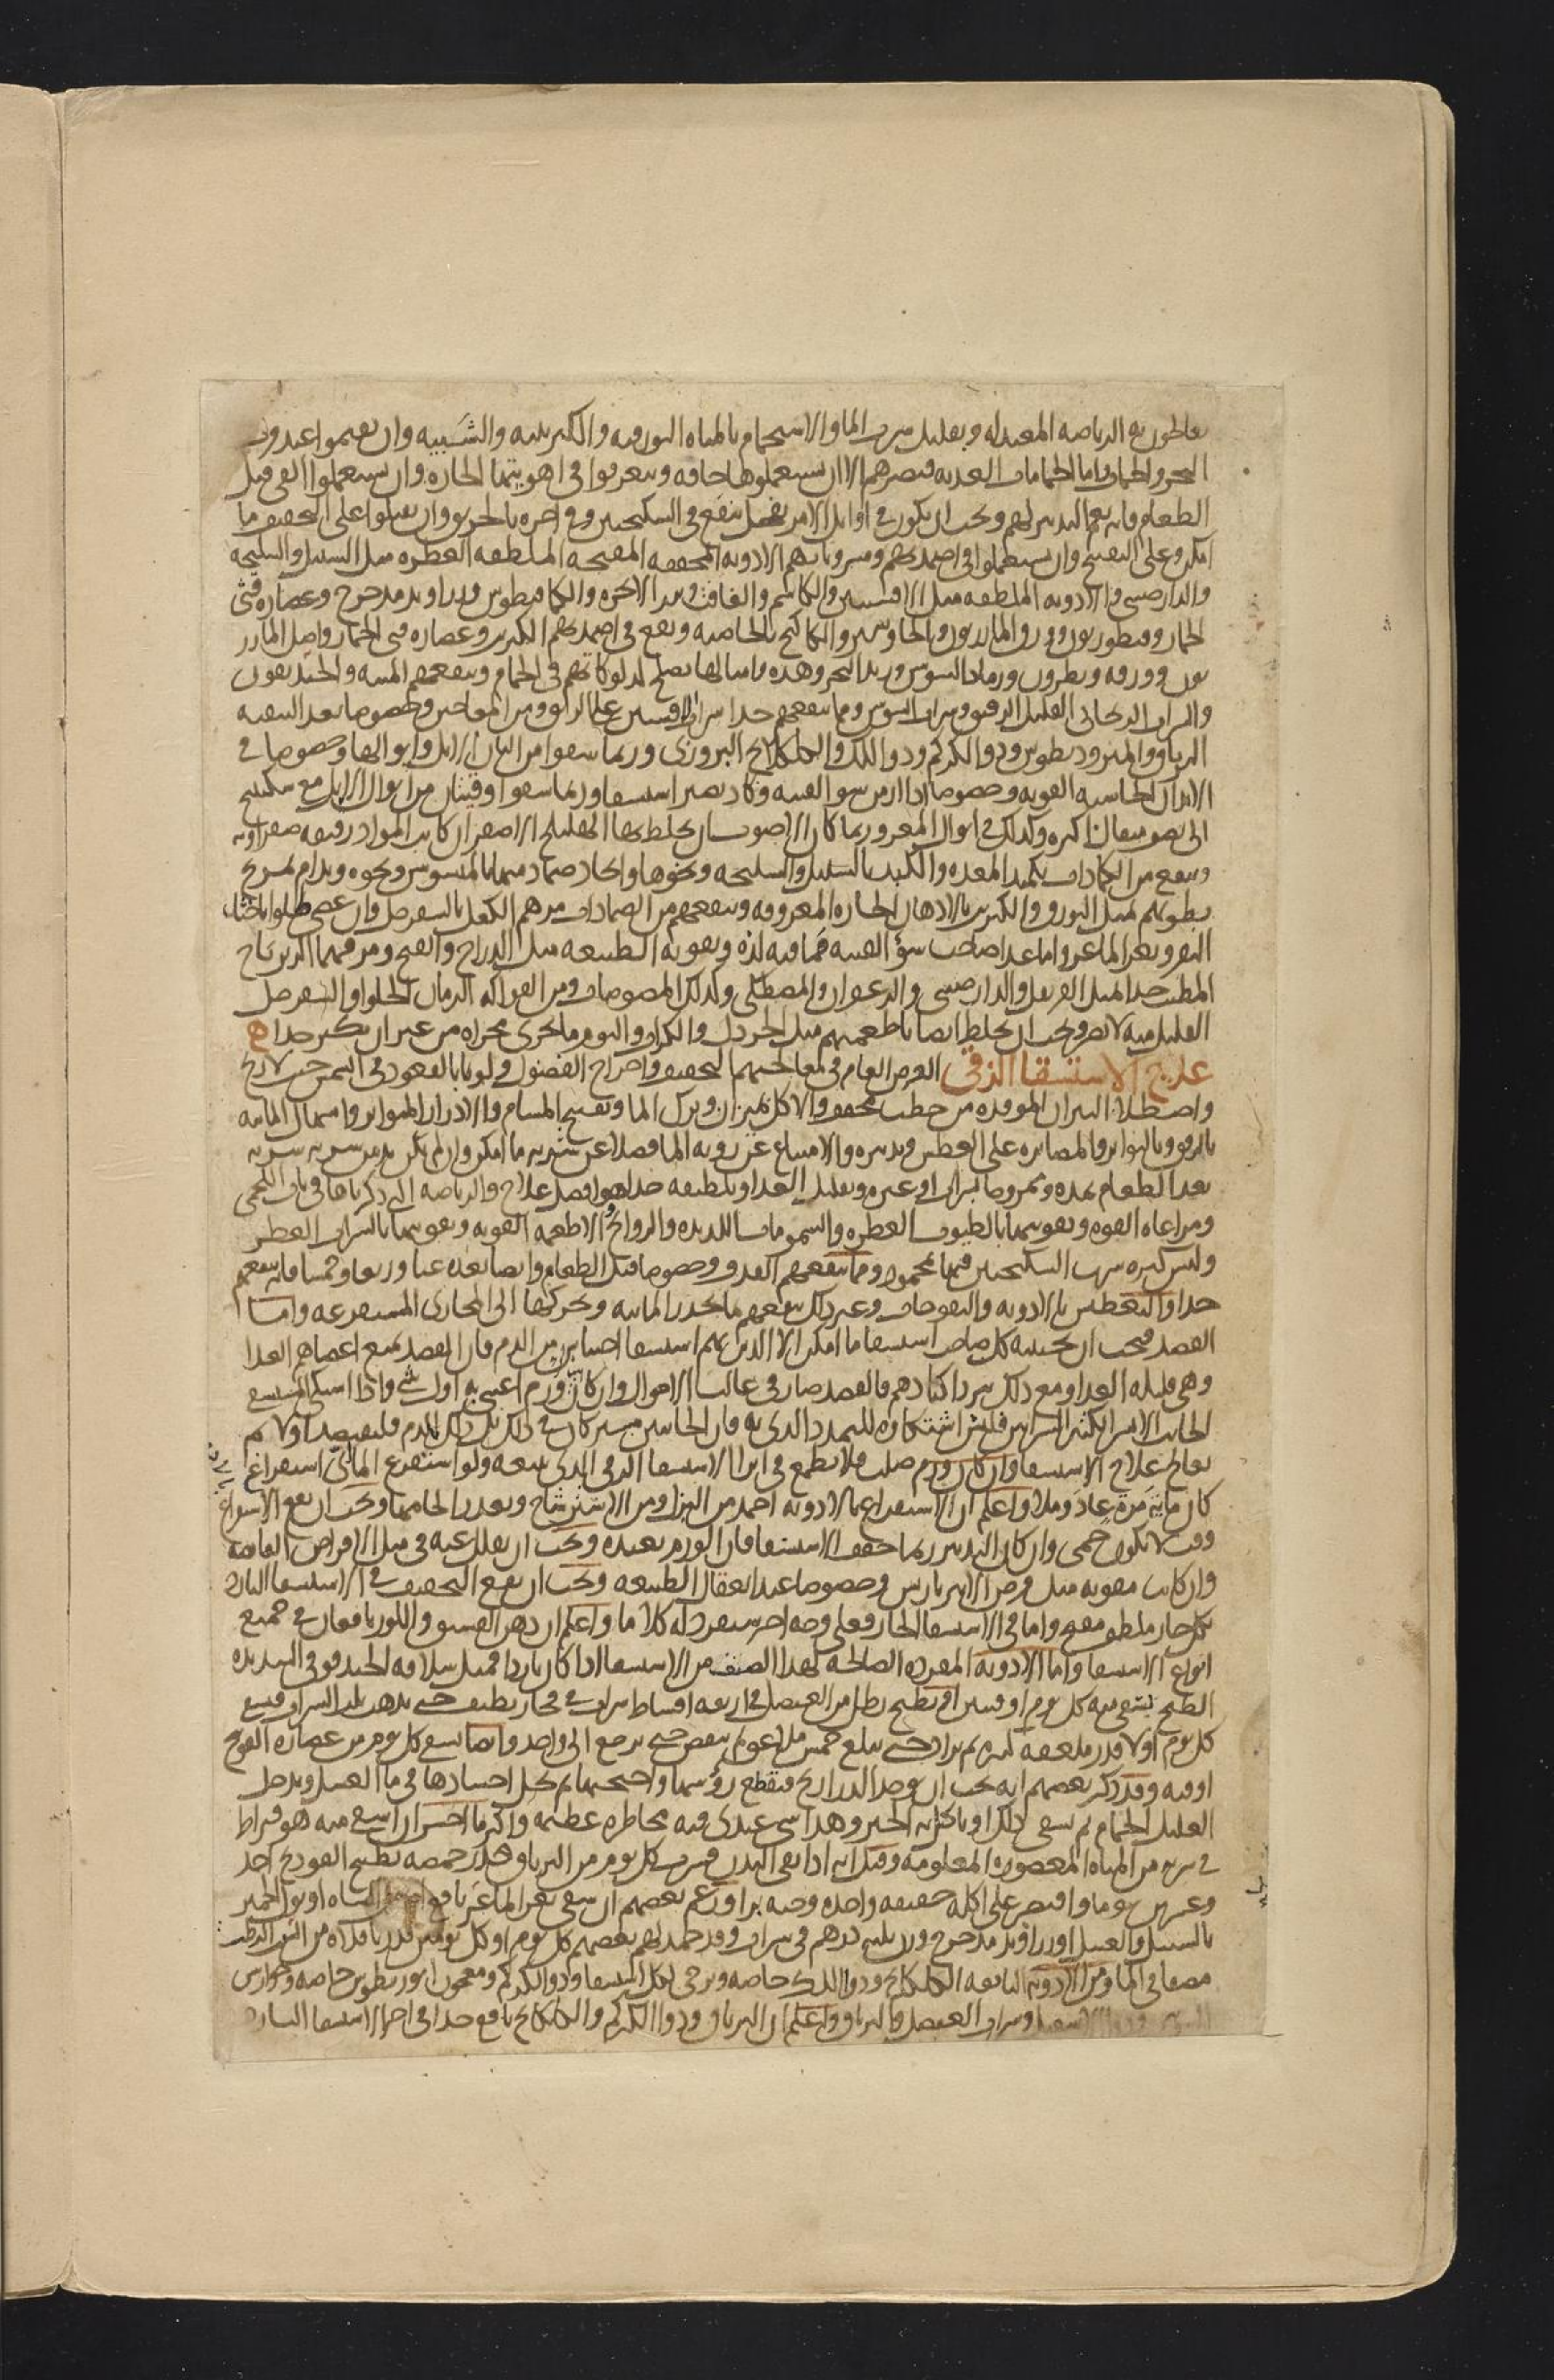 يعالجون به الرياضة المعتدلة وتقليل شرب الما والاستحمام بالمياه البورقيه والكبريتيه والشبيه وان يقيموا عند قرب
البحر والحمات واما الحمامات العذبه فتضرهم الا ان يستعملوها جافه ويتعرقوا في اهويتها الحاره وان يستعملوا القي قبل
الطعام فانه نعم التدبير لهم ويجب ان يكون في اوايل الامر بفجل ينقع في السكنجبين وفي اخره بالخربق وان يقبلوا على التجفيف ما
امكن وعلى التفتيح وان يستعملوا في اضمدتهم ومشروباتهم الادويه المجففه المفتحه الملطفه العطره مثل السنبل والسليخه
والدارصيني والادويه الملطفه مثل الافسنتين والكاشم والغافت وبزر الانجره والكمافيطوس وزراوند مدحرج وعصاره قثى
الحمار وقنطوريون وورق المازريون والجاوشير والكاكنج بالخاصيه ويقع في اضمدتهم الكبريت وعصاره قثى الحمار واصل المازر
يون وورقه ونطرون ورماد السوس وزبد البحر وهذه وامثالها تصلح لدلوكاتهم في الحمام وينفعهم الميبه والخنديقون
والشراب الريحاني القليل الرقيق وشراب السوس ومما ينفعهم جدا شراب الافسنتين على الريق ومن المعاجين وخصوصا بعد التنقيه
الترياق والمثروديطوس ودوا الكركم ودوا اللك والكلكلانج البزوري وربما سقوا من البان الابل وابوالها وخصوصا في
الابدان الجاسيه القويه وخصوصا اذا ازمن سو القنيه وكاد يصير استسقا وربما سقوا اوقيتان من ابوال الابل مع سكبينج
الى نصف مثقال او اكثره وكذلك في ابوال المعز وربما كان الاصوب ان يخلط بها الهليلج الاصفر ان كانت المواد رقيقه صفراويه
وينفع من الكمادات تكميد المعده والكبد بالسنبل والسليخه ونحوها واتخاذ ضماد منها بالميسوسن ونحوه ويدام تمريخ
بطونهم بمثل البورق والكبريت بالادهان الحاره المعروفه وينفعهم من الضمادات مرهم الكعك بالسفرجل وان عصى طلوا باخثا
البقر وبعر الماعز واما غذا صاحب سؤ القنيه فما فيه لذه وتقويه الطبيعه مثل الدراج والقبج ومن مرقهما الزيرباج
المطيب جدا بمثل القرنفل والدارصيني والزعفران والمصطكى وكذلك المصوصات ومن الفواكه الرمان الحلوا والسفرجل
القليل منه لا يضر ويجب ان يخلط ايضا باطعمتهم مثل الخردل والكراث والثوم وما يجرى مجراه من غير ان يكثر جدا ه
علاج الاستسقا الزقي الغرض العام في معالجتهم التجفيف واخراج الفضول ولو بالقعود في الشمس حيث لا ريح
واصطلا النيران الموقده من حطب مجفف والاكل بميزان وترك الما وتفتيح المسام والادرار المتواتر واسهال الماييه
بالرفق وبالتواتر والمصابره على العطش وتدبيره والامتناع عن رويه الما فضلا عن شربه ما امكن وان لم يكن بد من شربه شربه
بعد الطعام بمده وممزوجا بشراب او غيره وتقليل الغذا وتلطيفه جدا هو افضل علاج والرياضه التي ذكرناها في باب اللحمي
ومراعاه القوه وتقويتها بالطيوب العطره والشمومات اللذيذه والروايح والاطعمه القويه وتقويتها بالشراب العطر
وليس كثره شرب السكنجبين فيها بمحمود ومما ينفعهم القذف وخصوصا قبل الطعام وايضا بعده غبا وربعا وخمسا فانه ينفعهم
جدا والتعطيس بالادويه والنفوخات وغير ذلك ينفعهم ما يحدر الماييه ويحركها الى المجارى المستفرغه واما
الفصد فيجب ان يجتنبه كل صاحب استسقا ما امكن الا الذين بهم استسقا احتباس من الدم فان الفصد يمنع اعضاهم الغذا
وهي قليله الغذا ومع ذلك تبرد اكبادهم فالفصد ضار في غالب الاحوال وان كان ورم اعتني به اول شى واذا اشتكى المستسقى
الجانب الايسر الكثير الشرايين فليس اشتكاوه للتمدد الذى به فان الجانبين مشتركان في ذلك بل ذلك للدم فليفصد اولا ثم
يعالج علاج الاستسقا وان كان ورم صلب فلا يطمع في ابرا الاستسقا الزقي الذى يتبعه ولو استفرغ الماي اي استفراغ
كان ماية مرة عاد وملا واعلم ان الاستفراغ بالادويه احمد من البزل ومن الاسترشاح وتعذر الحامهما ويجب ان يقع الاستفراغ
وقت لا يكون حمى وان كان التدبير ربما جفف الاستسقا فان الورم يعيده ويجب ان يقلل عنه في مثل الاقراص القابضه
وان كانت مقويه مثل قرص الانبرباريس وخصوصا عند اعتقال الطبيعه ويجب ان يقع التجفيف في الاستسقا البارد
بكل حار ملطف مفتح واما في الاستسقا الحار فعلى وجه اخر سنفرد له كلاما واعلم ان دهن الفستق واللوز نافعان في جميع
انواع الاستسقا واما الادويه المفرده الصالحه لهذا الصنف من الاستسقا اذا كان باردا فمثل سلاقه الحندقوقى الشديده
الطبخ يسقى منه كل يوم اوقيتين او يطبخ رطل من العنصل في اربعه اقساط شراب في فخار نظيف حتى يذهب ثلث الشراب ويسقى
كل يوم اولا قدر ملعقه كبيره ثم يزاد حتى يبلغ خمس ملاعق ثم ينقص حتى يرجع الى واحد وايضا يسقى كل يوم من عصاره الفودنج
اوقيه وقد ذكر بعضهم انه يجب ان يوخذ الدراريح فيقطع رؤسها واجنحتها ثم تجعل اجسادها في ما العسل ويدخل
العليل الحمام ثم يسقى ذلك او ياكل به الخبز وهذا شي عندى فيه مخاطره عظيمه واكثر ما اجسر ان اسقي منه هو قيراط
في شربه من المياه المعصوره المعلومه وقيل انه اذا نقى البدن فشرب كل يوم من الترياق قدر حمصه بطبيخ الفودنج احد
وعشرين يوما واقتصر على اكله خفيفه واحده وجبه برا وزعم بعضهم ان سقي بعر الماعز نافع او بول الشاه او بول الحمير
بالسنبل والعسل او زراوند مدحرج وزن ثلثه درهم في شراب وقد حمد لهم بعضهم كل يوم او كل يومين قدر باقلاه من الشب الرطب
مصفا في الما ومن الادويه النافعه الكلكلانج ودوا اللك خاصه ويرجى لكل استسقا ودوا الكركم ومعجون ابوريطوس خاصه وجوارش
وشراب العنصل والترياق واعلم ان الترياق ودوا الكركم والكلكلانج نافع جدا في اخر الاستسقا البارد